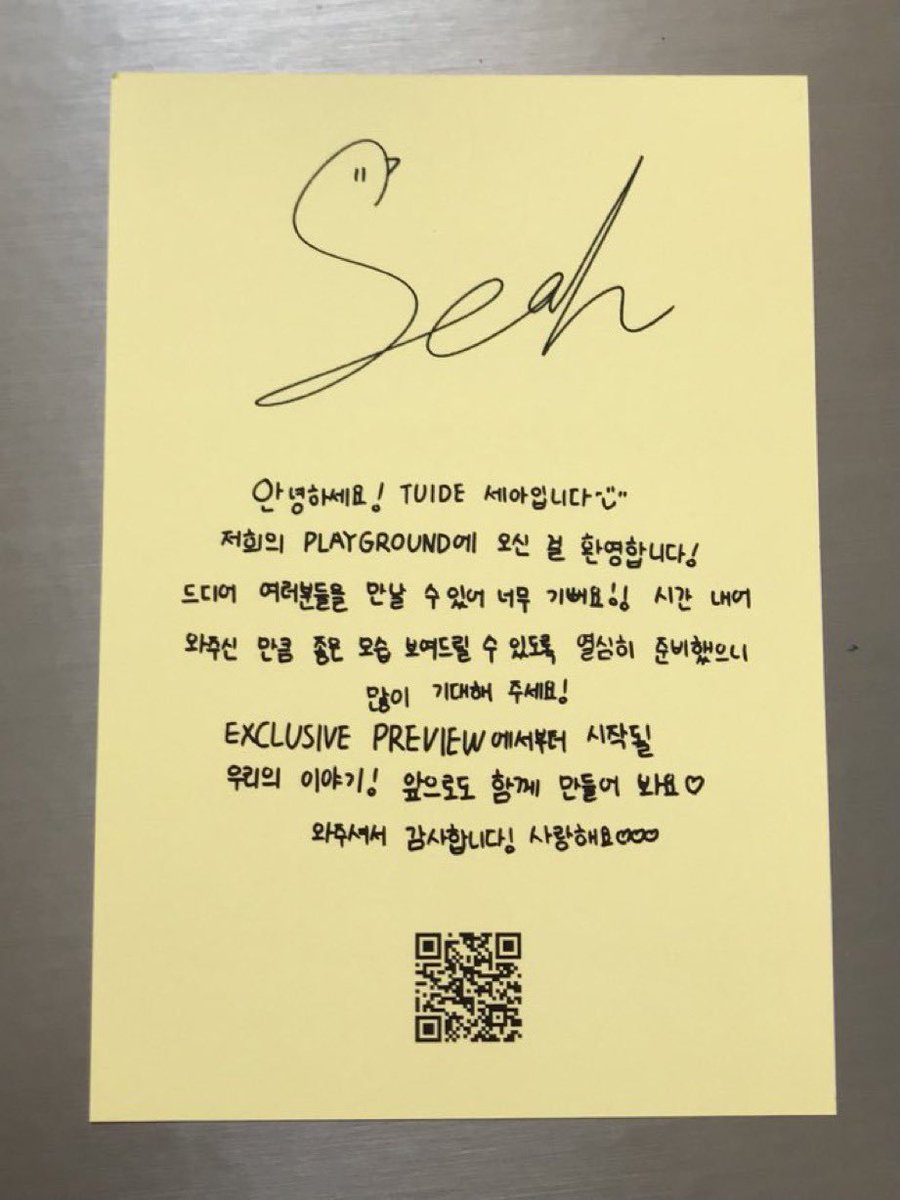 Seah
안녕하세요! TUIDE 세아입니다
저희의 PLAYGROUND에 오신 걸 환영합니다!
드디어 여러분들을 만날 수 있어 너무 기뻐요!! 시간 내어
와주신 만큼 좋은 모습 보여드릴 수 있도록 열심히 준비했으니
많이 기대해 주세요!
EXCLUSIVE PREVIEW에서부터 시작될
우리의 이야기! 앞으로도 함께 만들어 봐요♡
와주셔서 감사합니다! 사랑해요♡♡♡